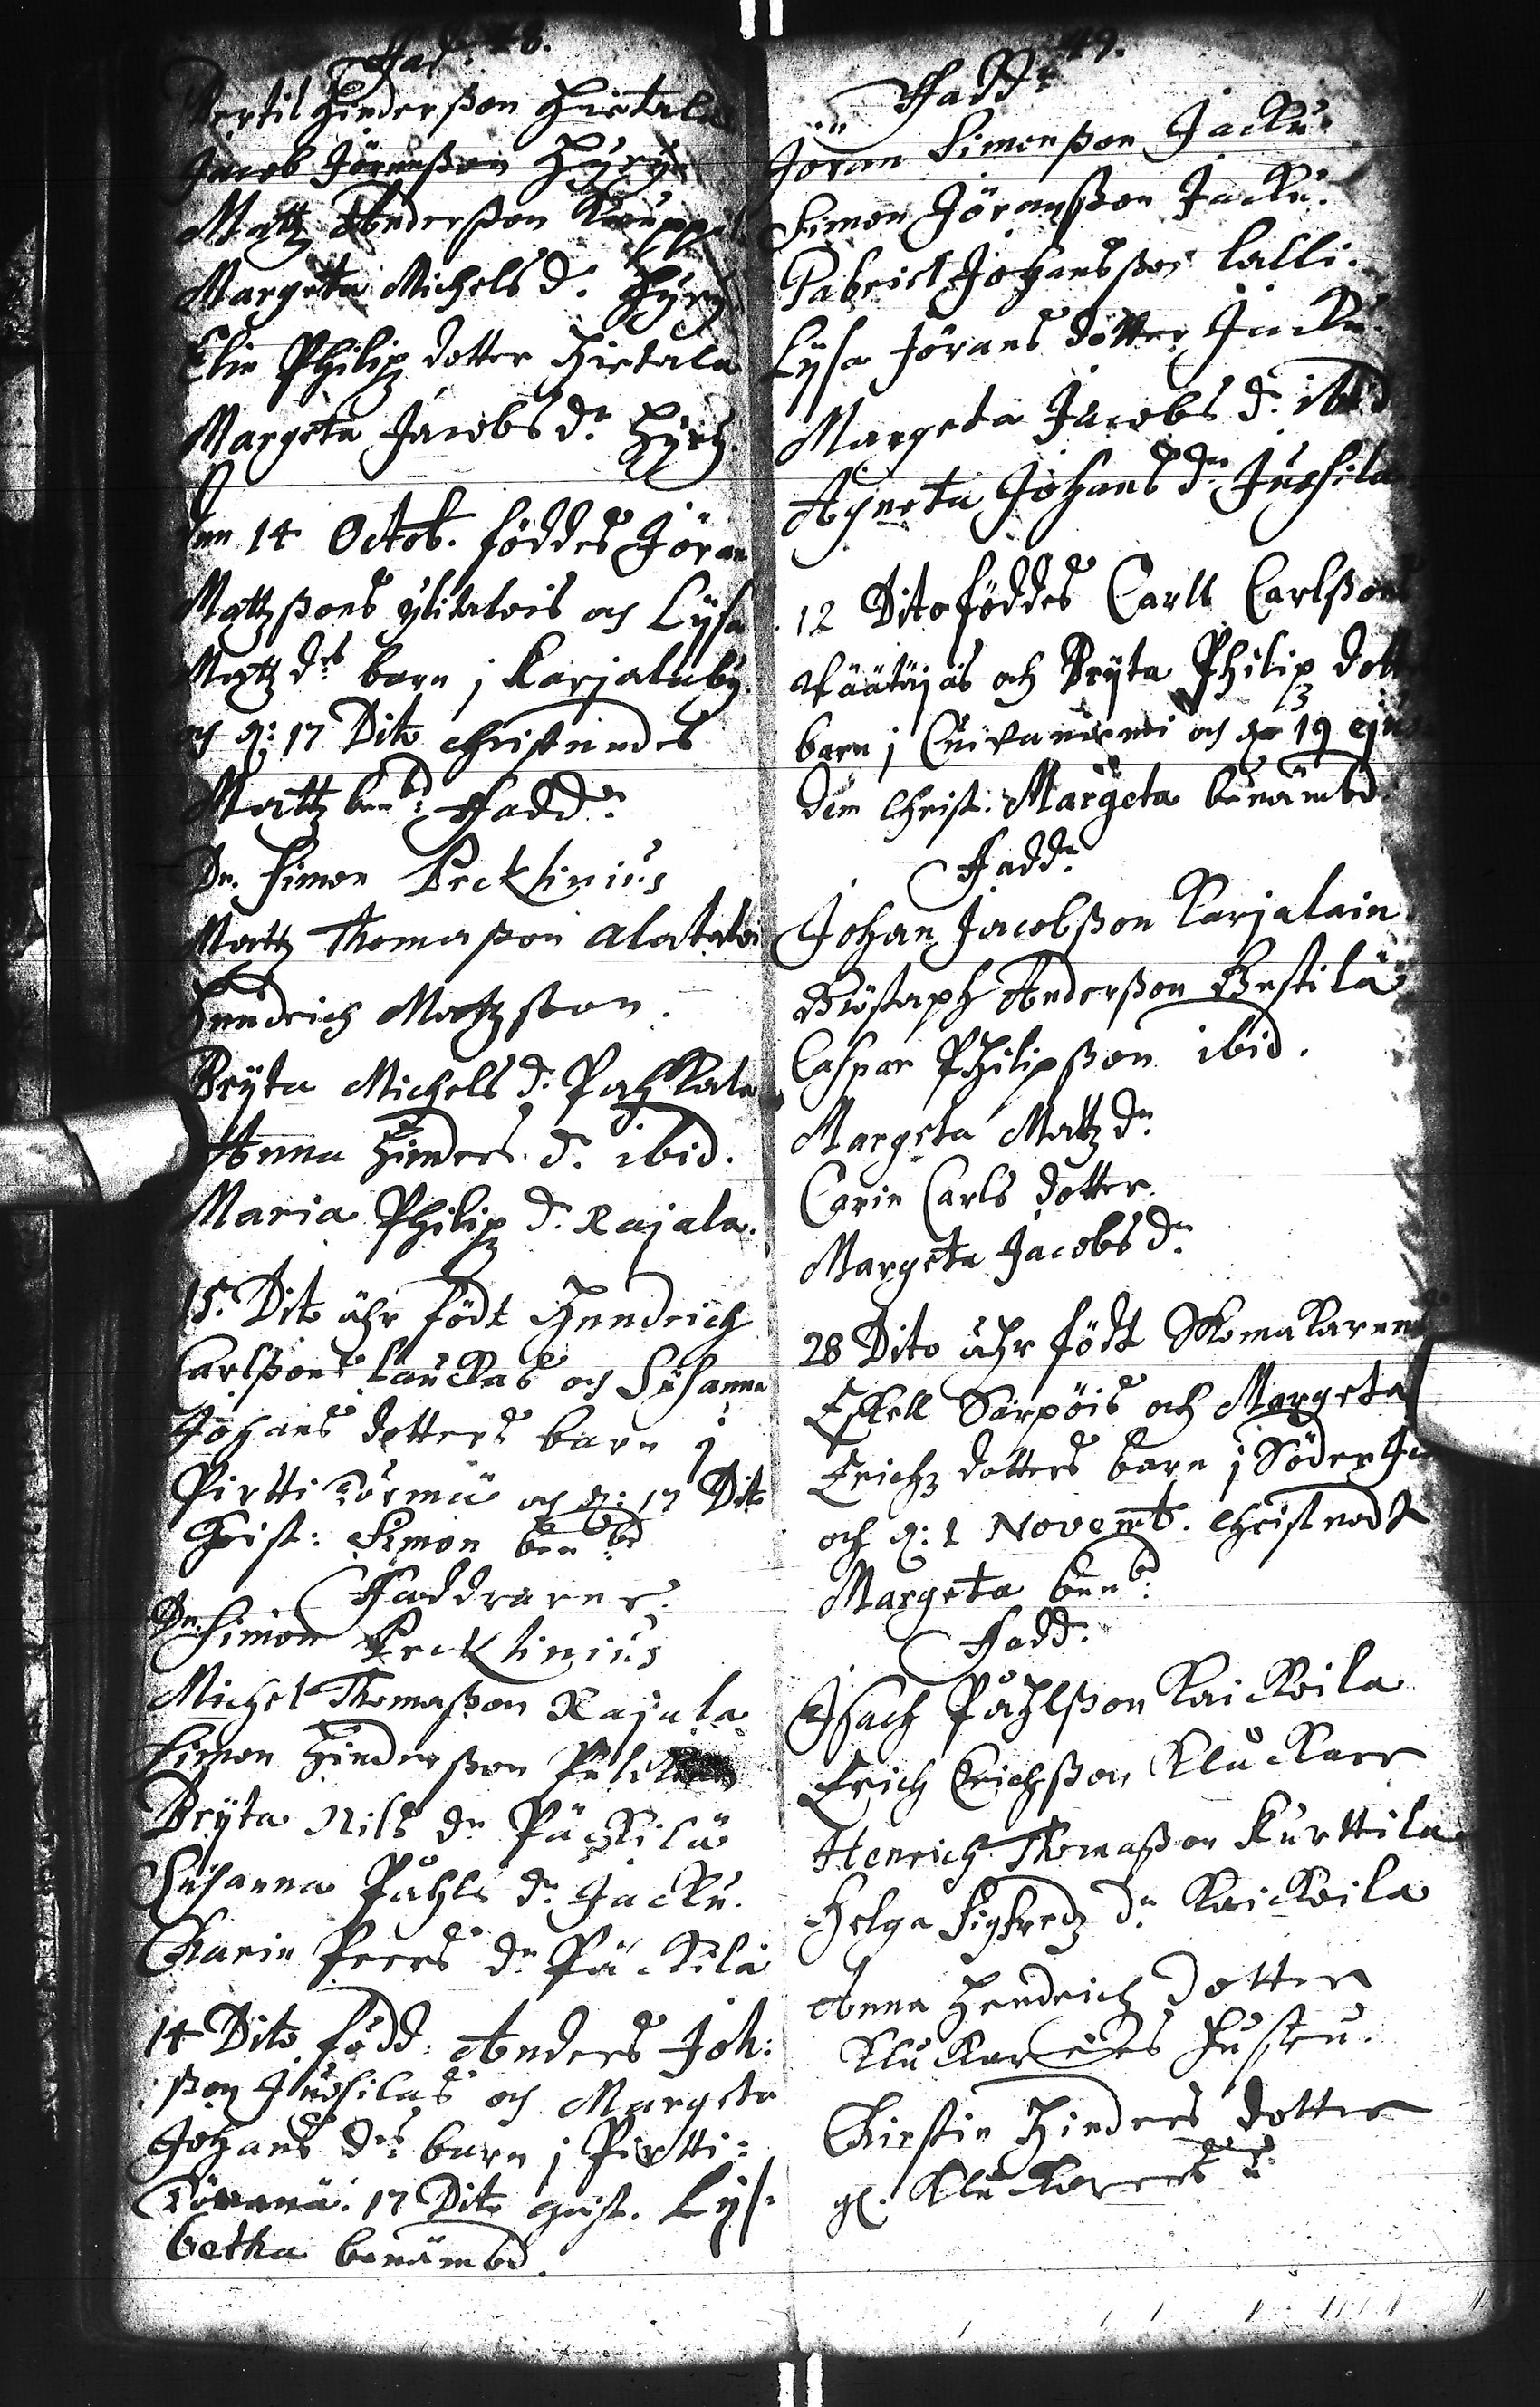 48.
Fad:
Bertil Hinderßon Hietala
Jacob Jöranßon Hyry
Mattz Anderßon Kauppi
Margeta Michels d:r Hyry
Elin Philipz dotter Hietala
Margeta Jacobs d:r Hyry.
Den 14 Octob. föddes Jöran
Mattzßons ylitalois och Lysa
Mattz d:rs barn j Karjalaby.
och d: 17 Dito christnades
Mattz ben:bd Fadd:r
Dn. Simon Precklinius
Mattz Thomaßon alatalo
Hindrich Matzßon.
Bryta Michels d:r Pahkala
Anna Hinders d:r ibid.
Maria Philipz d:r Rajala.
15. Dito ähr född Hendrich
Carlßons Lauckas och Susanna
Johans dotters barn j
Pirtti Törmä och d: 17 Dito
Christ: Simon ben:bd
Faddrarne.
Dn. Simon Precklinius
Michel Thomaßon Rajala
Simon Hinderßon
Bryta Nils d:r Päckilä
Susanna Påhls d:r Jacku.
Karin Peers d:r Päckilä
14 Dito född: Anders Joh:
ßon Jussilas och Margeta
Johans d:rs barn j Pirtti=
Törmä. 17 Dito christ. Lys=
betha benämbd.
49.
Fadd:r
Jöran Simonßon Jacku.
Simon Jöranßon Jacku.
Gabriel Johansßon Lalli.
Lysa Jörans dotter Jacku.
Margeta Jacobs d:r ibid
Agneta Johans d:r Jussila
12 Dito föddes Carll Carlßons
Väätäjäs och Bryta Philipz dott
barn j Cuivaniemi och d: 19 ejus
dem Christ. Margeta benämbd.
Fadd:r
Johan Jacobßon Karjalain
Gustaph Anderßon Bestilä
Caspar Philipßon ibid.
Margeta Mattz d:r
Carin Carls dotter.
Margeta Jacobs d:r
28 Dito ähr född Skomakaren
Eskell Särpöis och Margeta
Erichz dotters barn j Söder Jio
och d: 1 Novemb. christnadt
Margeta ben:bd
Fadd:r
Isach Påhlßon Kaickoila
Erich Erichßon Kluckare
Henrich Thomaßon Kurttila
Helga Sigfredz d:r Kaickoila
Anna Hendrich dotter
Kluckarens hustru.
Kirstin Hinders dotter
gl. Kluckarens